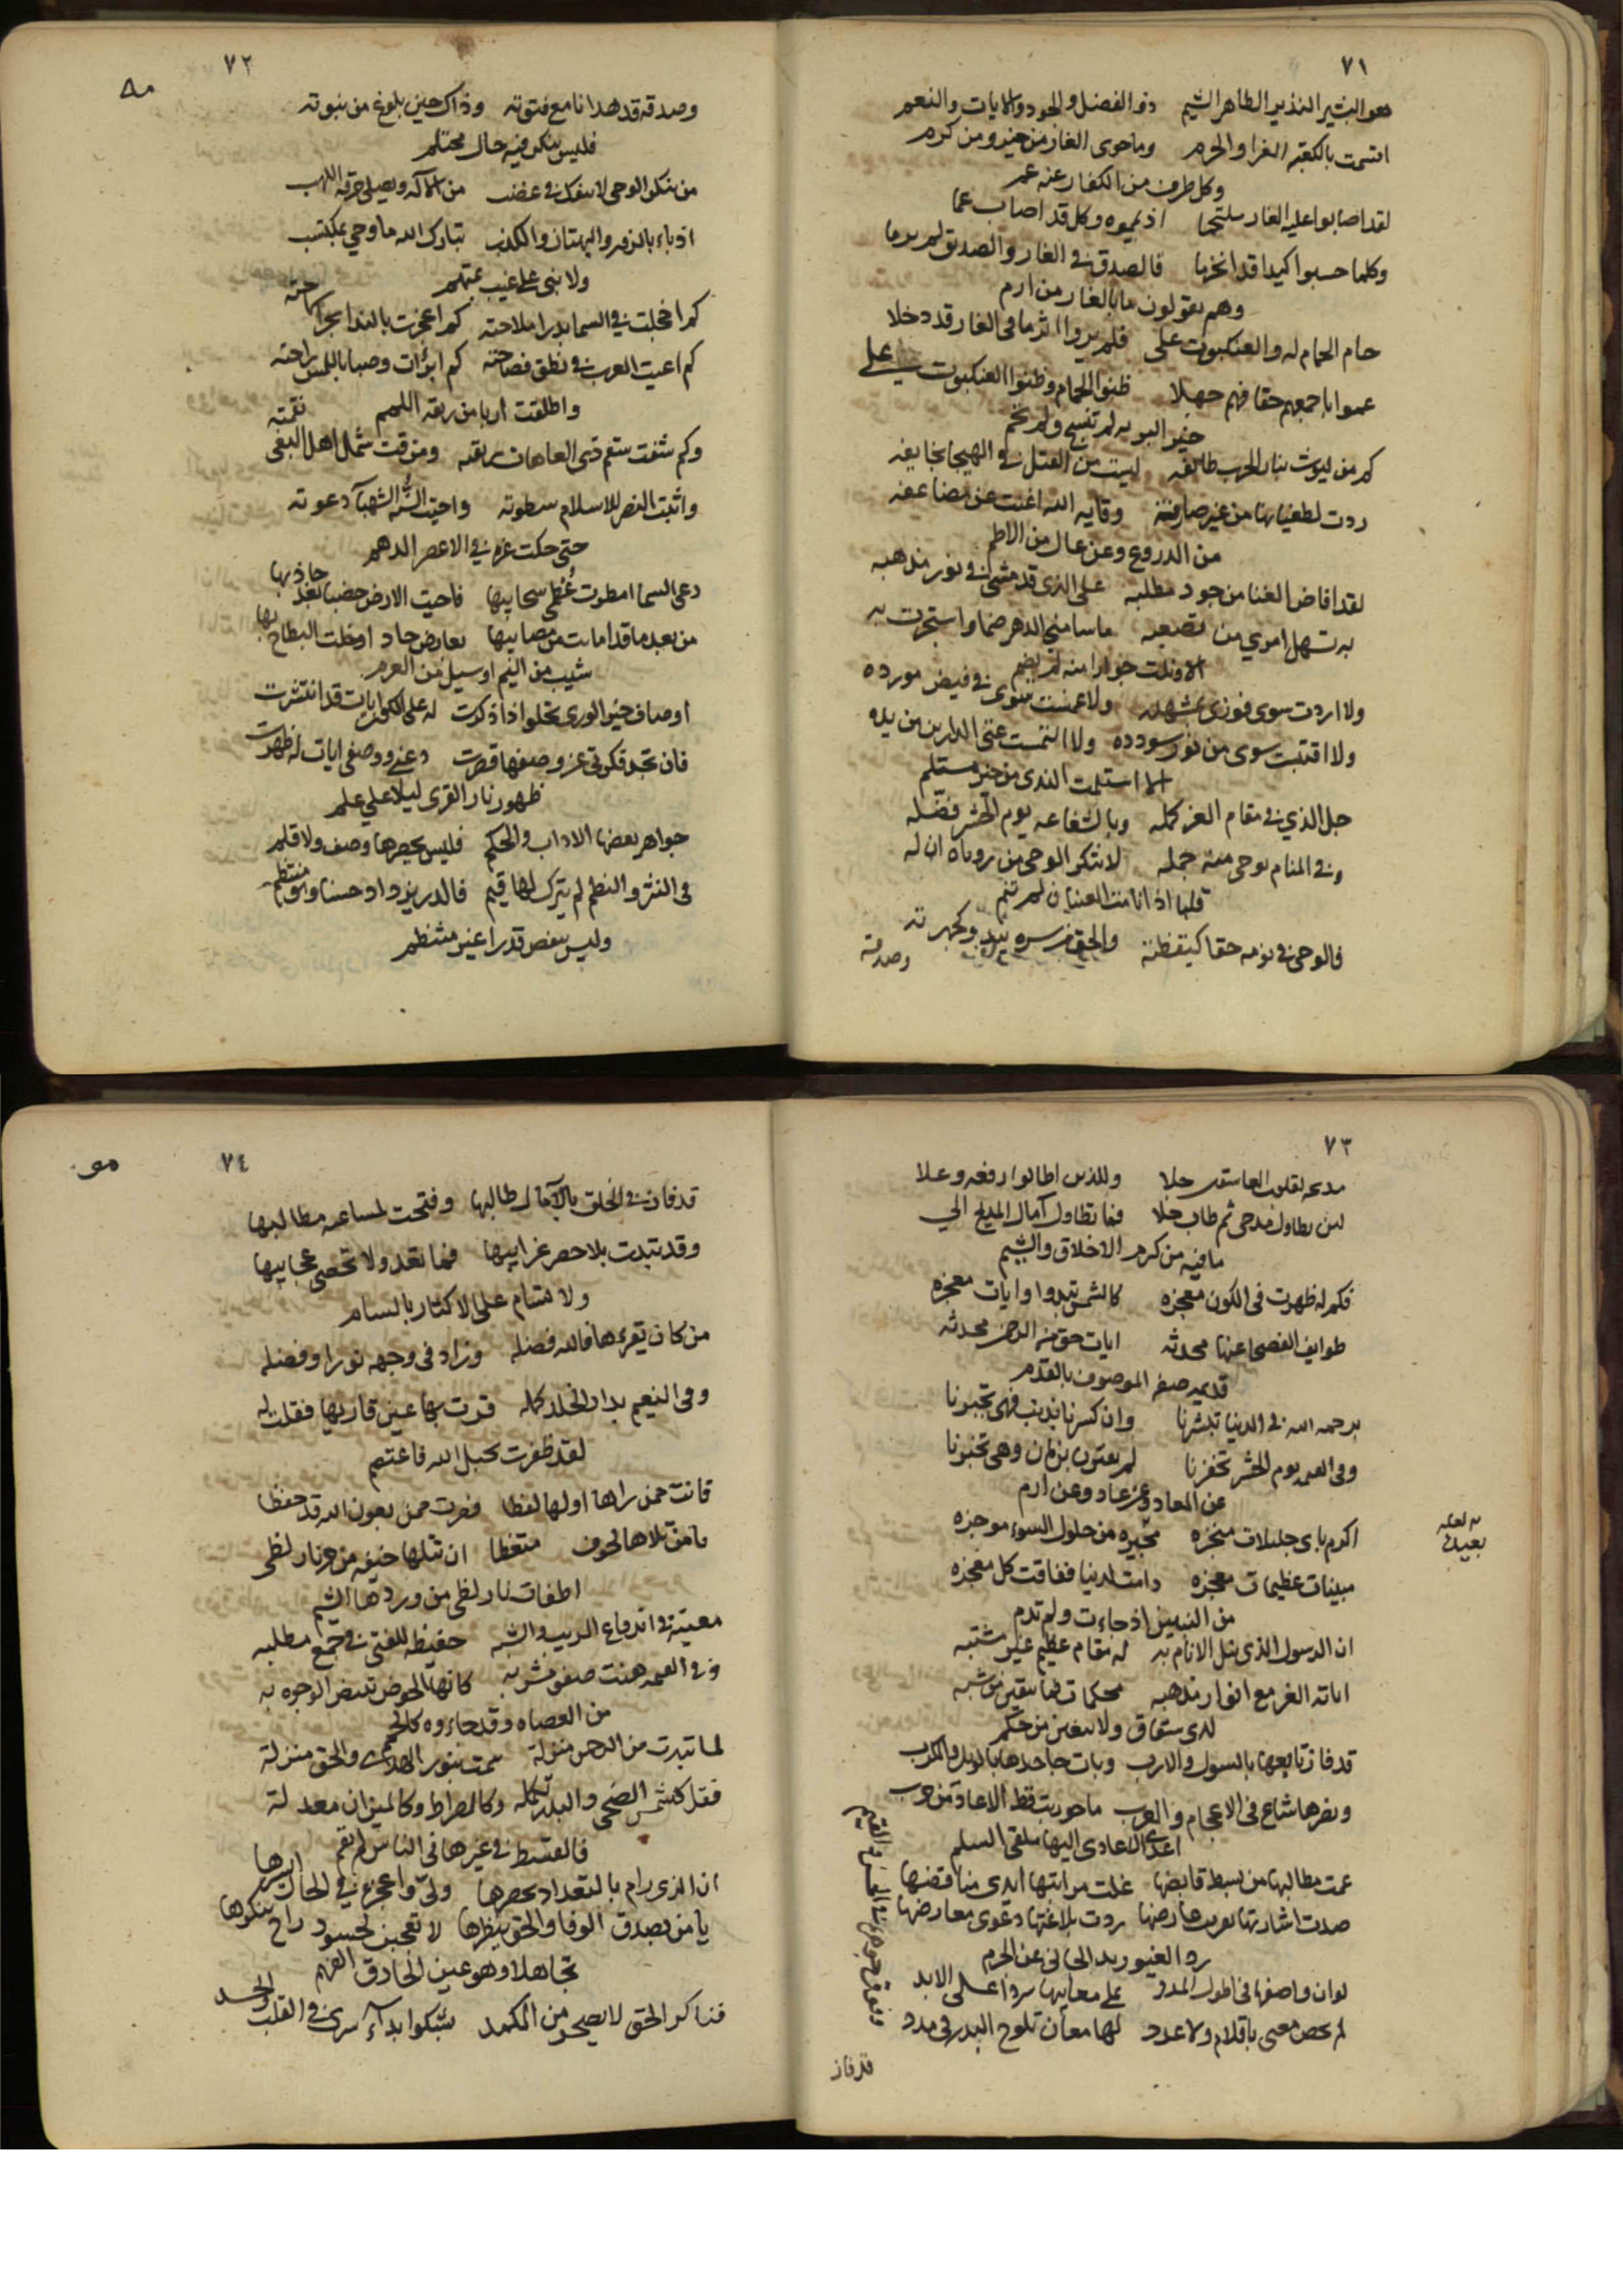 ٧١
هو البشير النذير الطاهر الشيم ذو الفضل والجود والايات والنعم
اقسمت بالكعبة الغرا والحرم وما حوى الغار من خير ومن كرم
وكل طرف من الكفار عنه عم
لقد اصابوا عليه الغار ملتحما اذ يمموه وكل قد اصاب عما
وكلما حسبوا كيدا قد انخرما فالصدق في الغار والصديق لم يرما
وهم يقولون ما بالغار من ارم
حام الحمام له والعنكبوت على فلم يروا اثرا في الغار قد دخلا
عموا باجمعهم حقا فهم جهلا ظنوا الحمام وظنوا العنكبوت على
خير البريه لم تنسج ولم تحم
كم من ليوث بنار الحرب طايفه ليست من القتل في الهيجا بخايفه
ردت لطغيانها من غير صارفة وقاية الله اغنت عن مضاعفه
من الدروع وعن عال من الاطم
لقد افاض الغنا من جود مطلبه على الذي قد مشى في نور مذهبه
به تسهل امري من تصعبه ما سامني الدهر ضيما واستجرت به
الا ونلت جوارا منه لم يضم
ولا اردت سوى فوزي بمشهده ولا غمست سوى في فيض مورده
ولا اقتبست سوى من نور سودده ولا التمست غنى الدارين من يده
الا استلمت الندى من خير مستلم
جل الذي في مقام العز كمله وبالشفاعه يوم الحشر فضله
وفي المنام بوحي منه جمله لا تنكر الوحي من روياه ان له
قلبا اذا نامت العينان لم تنم
فالوحي في نومه حقا كيقظته والحق في سره يبدو كجهرته
وصدقه
٧٢
وصدقه قد هدانا مع فتوته وذاك حين بلوغ من نبوته
فليس ينكر فيه حال محتلم
من ينكر الوحي لا ينفك في غضب من الاله ويصلى حرقة اللهب
اذ باء بالزور والبهتان والكذب تبارك الله ما وحي بمكتسب
ولا نبي على غيب بمتهم
كم اخجلت في السما بدرا ملاحته كم اعجزت بالندا بحرا سماحته
كم اعيت العرب في نطق فصاحته كم ابرأت وصبا باللمس راحته
واطلقت اربا من ربقة اللمم
وكم شفت سقم ذي العاهات ريقته ومزقت شمل اهل البغي نقمته
واثبت النصر للاسلام سطوته واحيت السنة الشهباء دعوته
حتى حكت غرة في الاعصر الدهم
دعى السما امطرت عظمى سحايبها فاحيت الارض خصبا بعد جاذبها
من بعد ما قد امات من مصايبها بعارض جاد او خلت البطاح بها
سيب من اليم او سيل من العرم
اوصاف خير الورى تحلوا اذا ذكرت له على الكون ايات قد انتشرت
فان تجد فكرتي عن وصفها قصرت دعني ووصفي ايات له ظهرت
ظهور نار القرى ليلا على علم
جواهر بعضها الاداب والحكم فليس يحصرها وصف ولا قلم
في النثر والنظم لم يترك لها قيم فالدر يزداد حسنا وهو منتظم
وليس ينقص قدرا غير منتظم
٧٣
مدحه لقلوب العاشقين حلا وللذين اطالوا رفعه وعلا
لين تطاول مدحي ثم طاب حلا فما تطاول آمال المديح الى
ما فيه من كرم الاخلاق والشيم
فكم له ظهرت في الكون معجزه كالشمس تبدوا وايات معجزه
طوايف الفصحا عنها محدثه ايات حق من الرحمن محدثه
قديمه صفة الموصوف بالقدم
برحمة الله في الدنيا تبشرنا وان كسرنا بذنب فهي تجبرنا
وفي القيمه يوم الحشر تخفرنا لم تقترن بزمان وهي تخبرنا
عن المعاد وعن عاد وعن ارم
اكرم باي جليلات منجزه مجيره من حلول السوء موجزه
مبينات عظيمات معجزه دامت لدينا ففاقت كل معجزه
من النبيين اذ جاءت ولم تدم
ان الرسول الذي كل الانام به له مقام عظيم غير مشتبه
اياته الغر مع انوار مذهبه محكمات فما يبقين من شبه
لذي شقاق ولا يبغين من حكم
قد فاز تابعها بالسول والارب وبات جاحدها بالويل والكرب
ونصرها شاع في الاعجام والعرب ما حوربت قط الا عاد من حرب
اعدى الاعادي اليها ملقي السلم
عمت مطالبها من بسط قابضها علت مراتبها ابدى مناقضها
صدت اشارتها تعريب عارضها ردت بلاغتها دعوى معارضها
رد الغيور يد الجاني عن الحرم
لو ان واصفها في اطول المدد على معانيها سردا على الابد
لم يحص معنى باقلام ولا عدد لها معان تلوح البدر في مدد
قد فاز
٧٤
قد فاز في الخلق بالآمال طالبها وفتحت لمساعيه مطالبها
وقد تبدت بلا حصر غرايبها فما تعد ولا تحصى عجايبها
ولا تسام على الاكثار بالسام
من كان يقرءها فالله فضله وزاد في وجهه نورا وفضله
وفي النعيم بدار الخلد كمله قرت بها عين قاريها فقلت له
لقد ظفرت بحبل الله فاعتصم
فانت ممن راها اولها لفظا فصرت ممن بعون الله قد حفظا
يا من تلاها لخوف متعظا ان تتلها خيفة من حر نار لظى
اطفات نار لظى من وردها الشبم
معينة في اندفاع الريب والشبه حفيظة للفتى في جمع مطلبه
وفي القيمه هنت صفو مشربه كانها الحوض تبيض الوجوه به
من العصاه وقد جاءوه كالحمم
لما تبدت من الرحمن منزلة سمت بنور الهدى والحق منزلة
فقل كشمس الضحى والبدر تكمله وكالصراط وكالميزان معدلة
فالقسط في غيرها في الناس لم يقم
ان الذي رام بالتعداد يحصرها ولى واعجزه في الحال ايسرها
يا من بصدق الوفا والحق ينظرها لا تعجبن لحسود راح ينكرها
تجاهلا وهو عين الحاذق الفهم
فناكر الحق لا يصحو من الكمد يشكوا بداء سرى في القلب والجسد